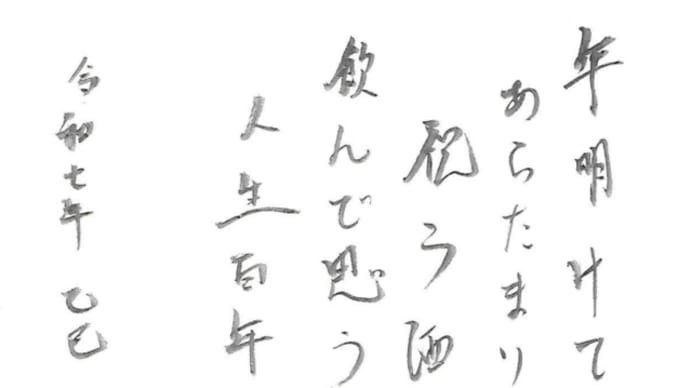 年明けて
あらたまり
祝う酒
飲んで思う
人生百年
令和七年 乙巳